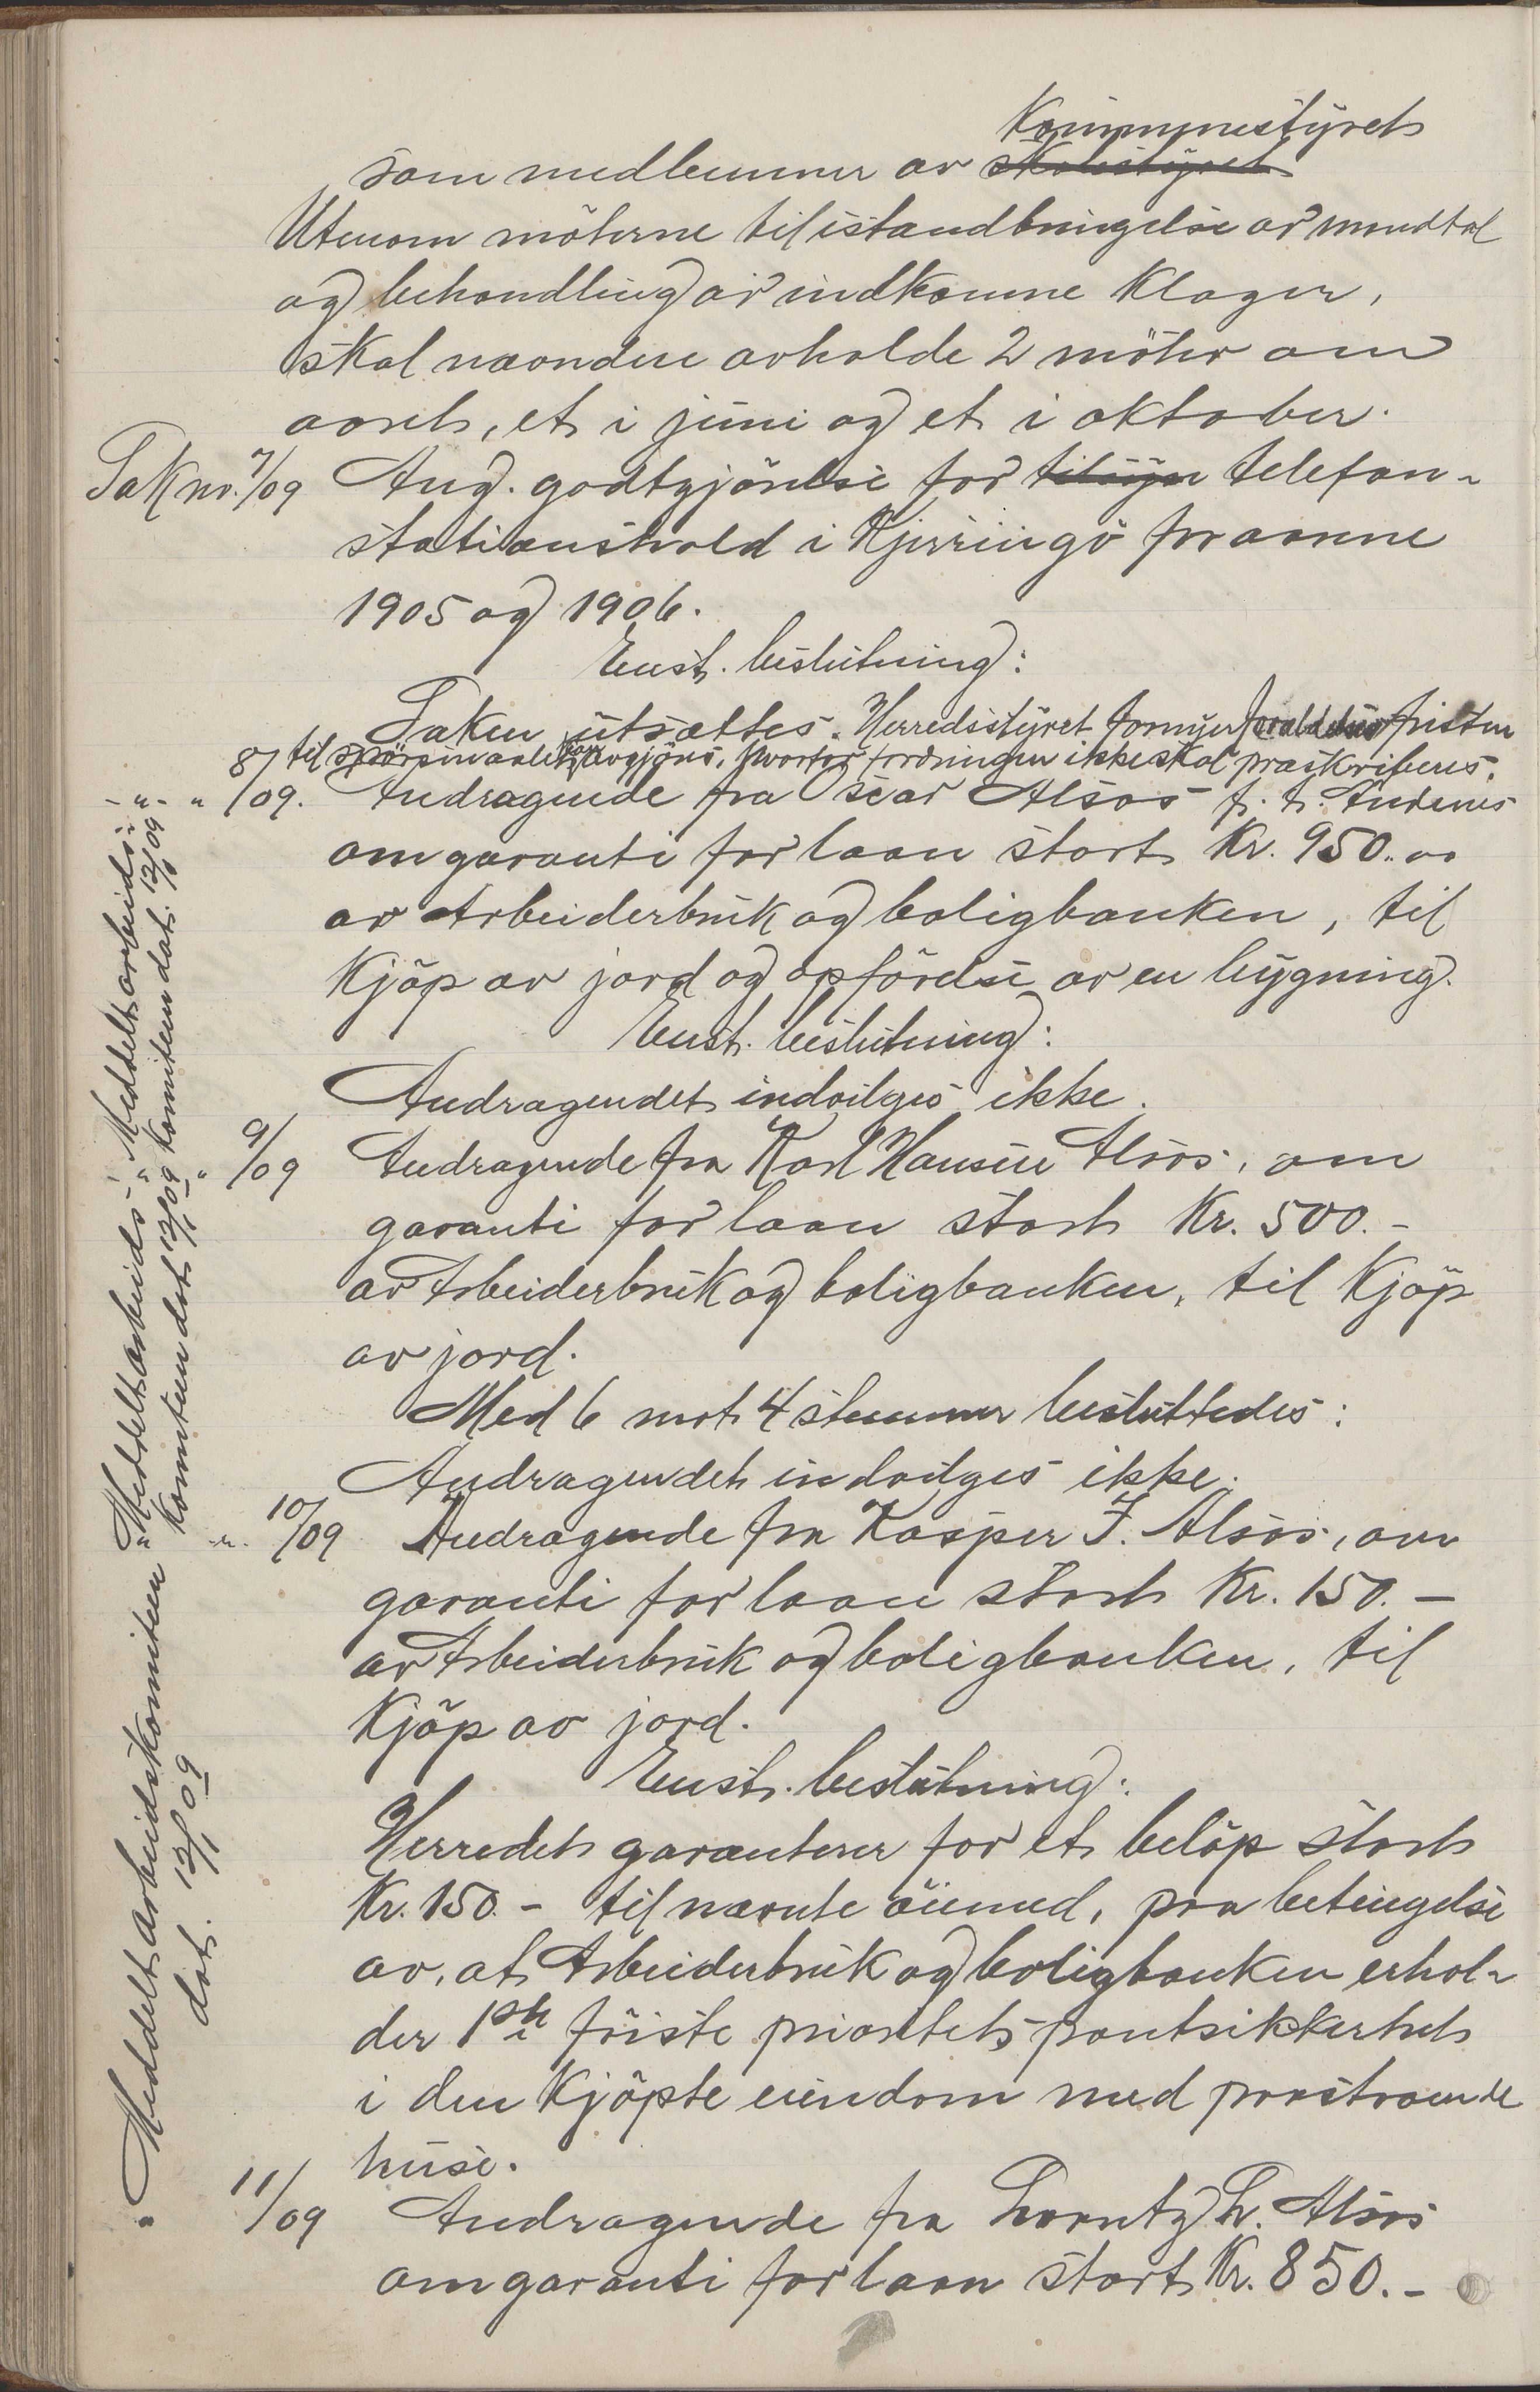 Kommunestyret
som medlemmer av skolestyret
Utenom møterne til istandbringelse av mandtal
og behandling av indkomne klager,
skal nævnden avholde 2 møter om
aaret, et i juni og et i oktober.
Sak nr. 7/09 Ang. godtgjörelse for tilsyn telefon-
stationshold i Kjerringö for aarene
1905 og 1906.
Enst. beslutning:
Saken utsættes. Herredsstyret fornyer foreldelses fristen
til spörsmaalet kan avgjöres, hvorfor fordringen ikke skal præskriberes.
-"- " 8/09. Andragende fra Alsos p. t. Andenes
om garanti for laan stort Kr. 950.00
av Arbeiderbruk og boligbanken, til
Kjöp av jord og opförelse av en bygning.
Enst. beslutning:
Andragendet indvilges ikke.
" 9/09 Andragende fra Karl Hansen Alsos, om
garanti for laan stort Kr. 500.-
av Arbeiderbruk og boligbanken, til Kjöp
av jord.
Med 6 mot 4 stemmer besluttedes:
Andragendet indvilges ikke.
-"- 10/09 Andragende fra Kasper J. Alsos, om
garanti for laan stort Kr. 150.-
av Arbeiderbruk og boligbanken, til
Kjöp av jord.
Enst. beslutning:
Herredet garanterer for et belöp stort
Kr. 150.- til nævnte öiemed, paa betingelse
av, at Arbeiderbruk og boligbanken erhol-
der 1ste förste prioritets pantsikkerhet
i den Kjöpte eiendom med paastaaende
huse.
" 11/09 Andragende fra Lorentz L. Alsos
om garanti for laan stort Kr. 850.-
Meddelt arbeids-
komiteen dat. 12/1 09
" Meddelt arbeids-
komiteen dat 12/1 09
" Meddelt arbeidskomiteen
dat. 12/1 09